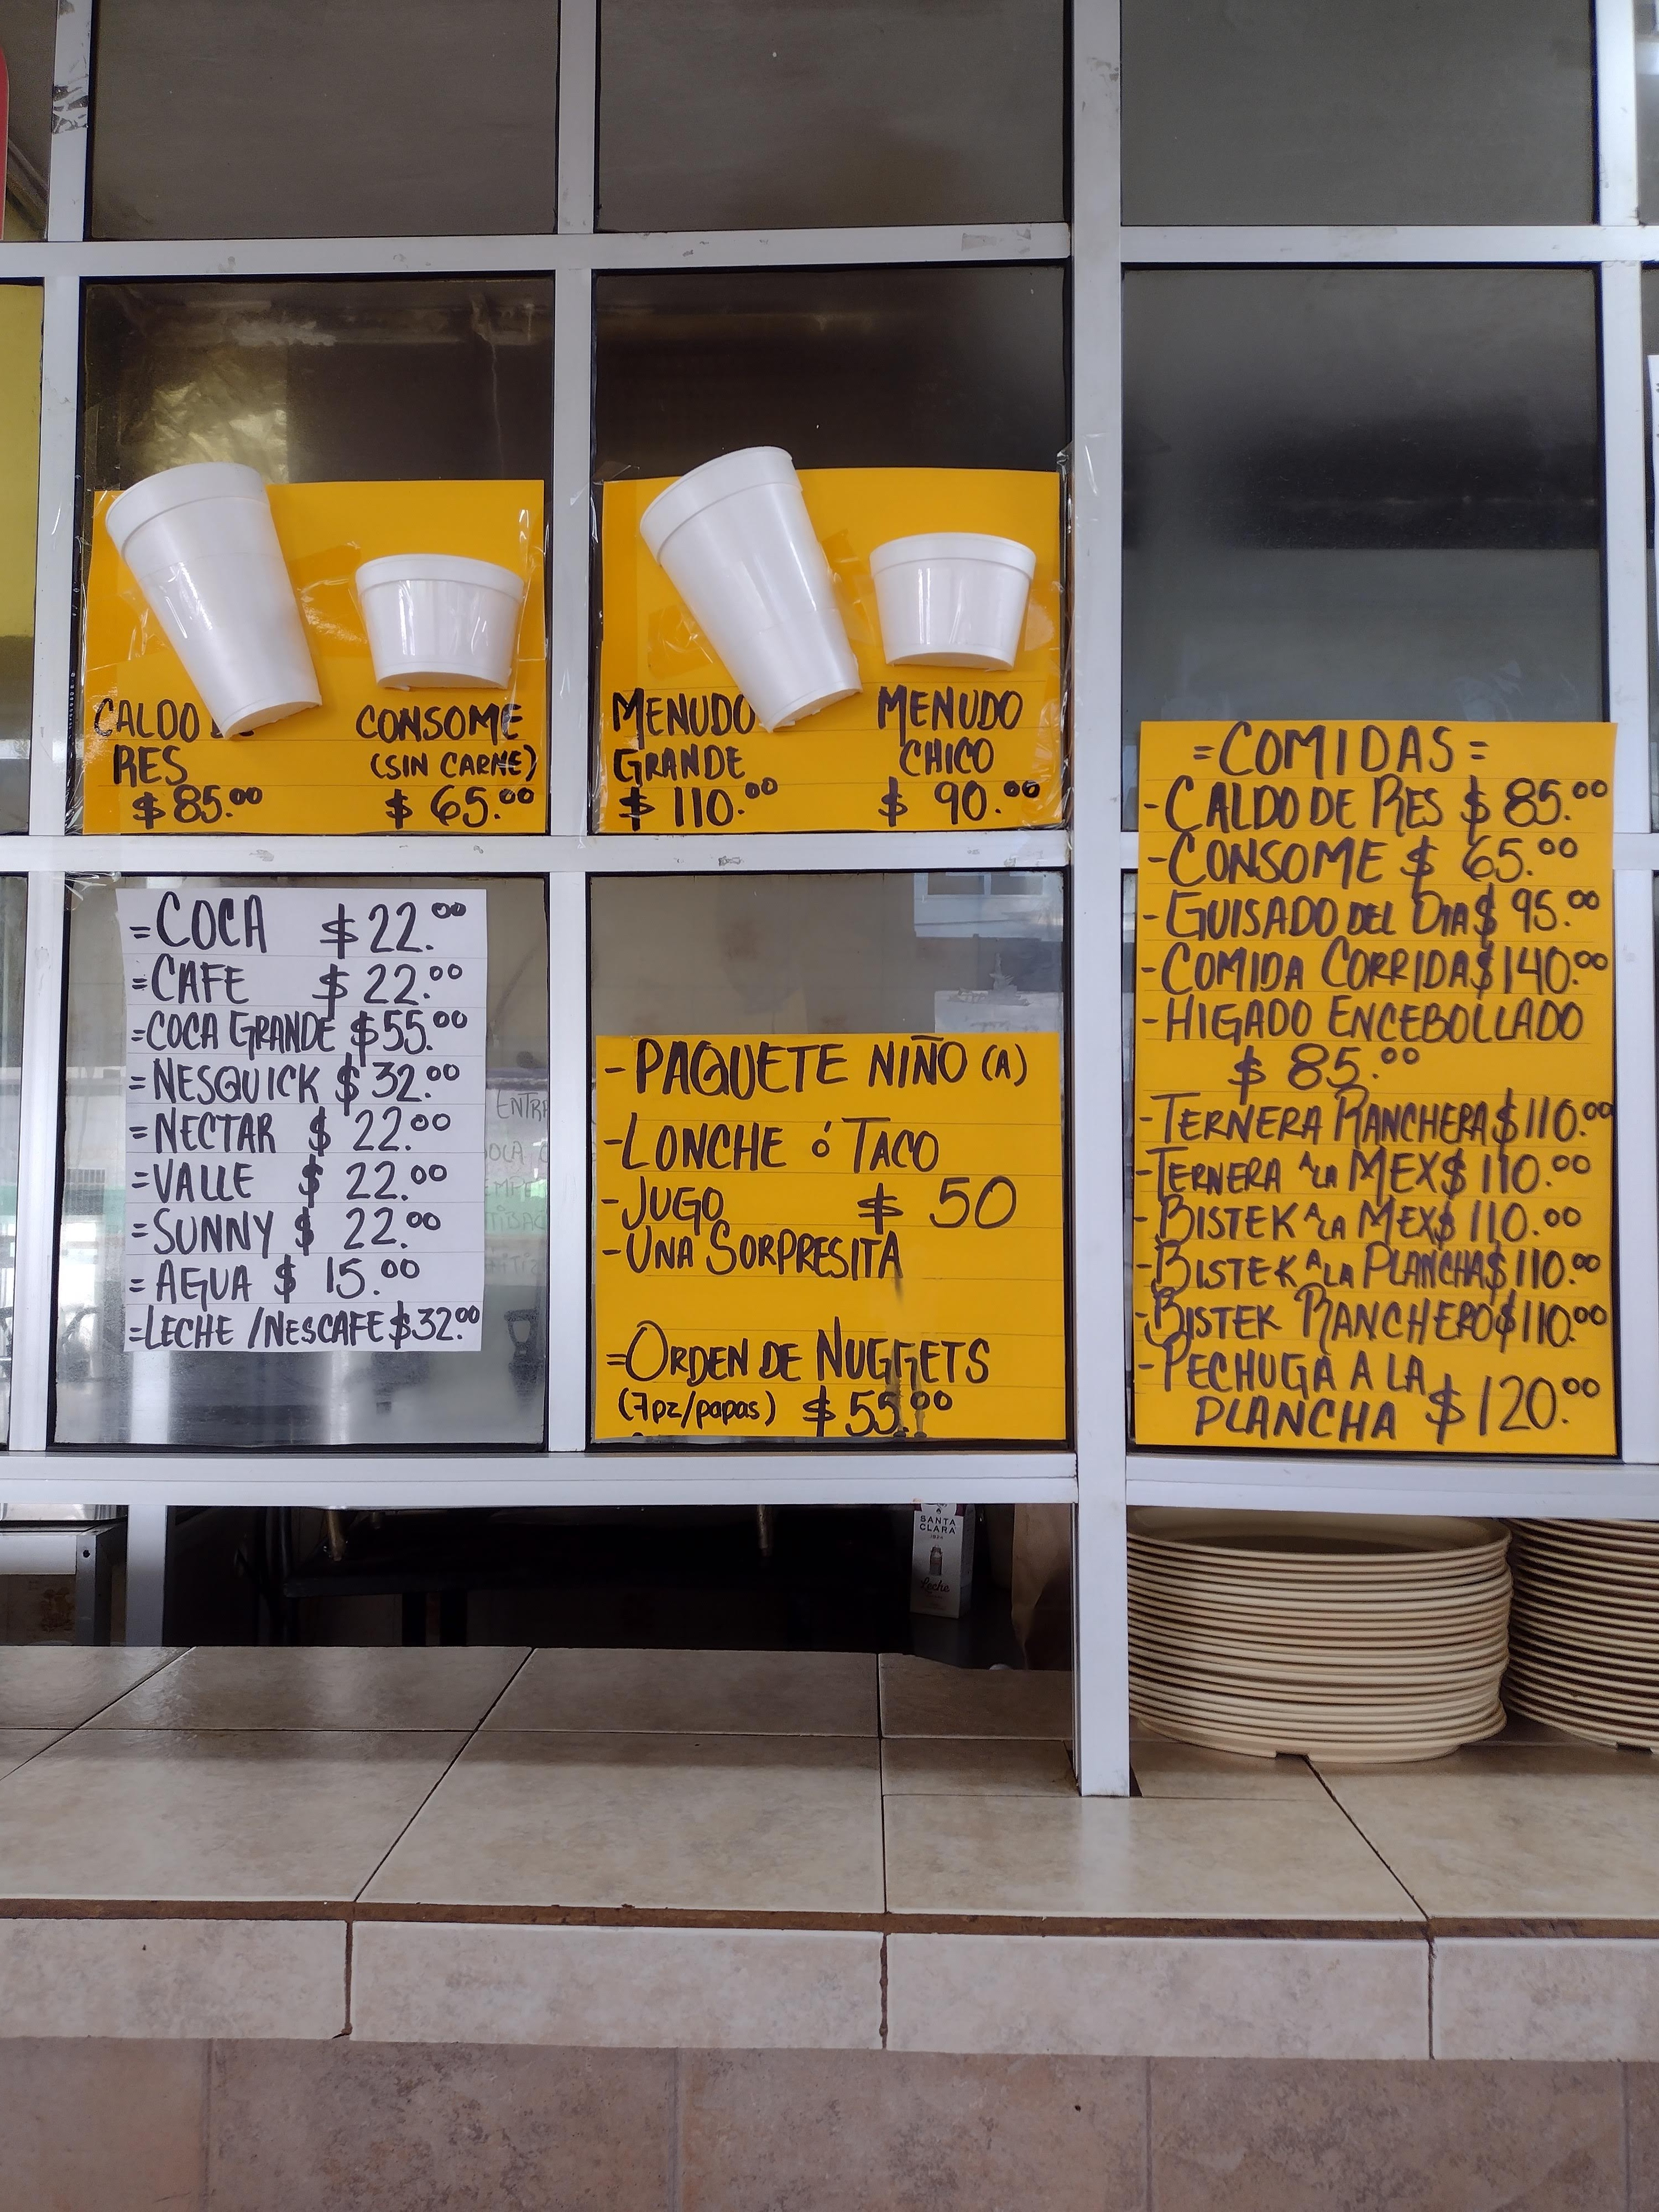 CALDO
RES
$ 85.00
CONSOME
(SIN CARNE)
$ 65.00
MENUDO
GRANDE
$ 110.00
MENUDO
CHICO
$ 90.00
=COMIDAS=
-CALDO DE RES $ 85.00
-CONSOME $ 65.00
-GUISADO DEL DIA $ 95.00
-COMIDA CORRIDA $140.00
-HIGADO ENCEBOLLADO
$ 85.00
-TERNERA RANCHERA $110.00
-TERNERA A LA MEX $ 110.00
-BISTEK A LA MEX $ 110.00
-BISTEK A LA PLANCHA $110.00
-BISTEK RANCHERO $110.00
-PECHUGA A LA
PLANCHA $120.00
=COCA $22.00
=CAFE $ 22.00
=COCA GRANDE $55.00
=NESQUICK $ 32.00
=NECTAR $ 22.00
=VALLE $ 22.00
=SUNNY $ 22.00
=AGUA $ 15.00
=LECHE /NESCAFE $32.00
-PAQUETE NIÑO (A)
-LONCHE ó TACO
-JUGO $ 50
-UNA SORPRESITA
=ORDEN DE NUGGETS
(7pz/papas) $ 55.00
SANTA
CLARA
Leche